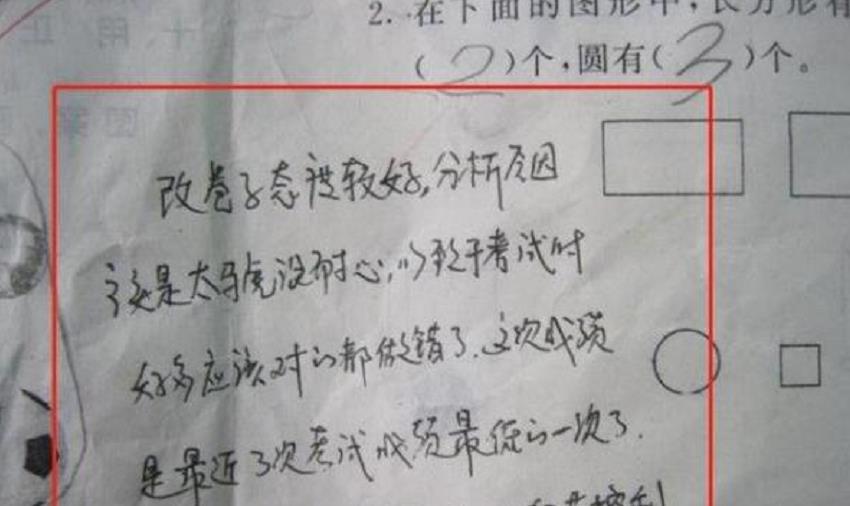 2. 在下面的图形中,长方形有
(2)个,圆有(3)个。
改卷子态度较好,分析原因
还是太马虎没耐心,以致于考试时
好多应该对的都做错了.这次成绩
是最近3次考试成绩最低的一次了.